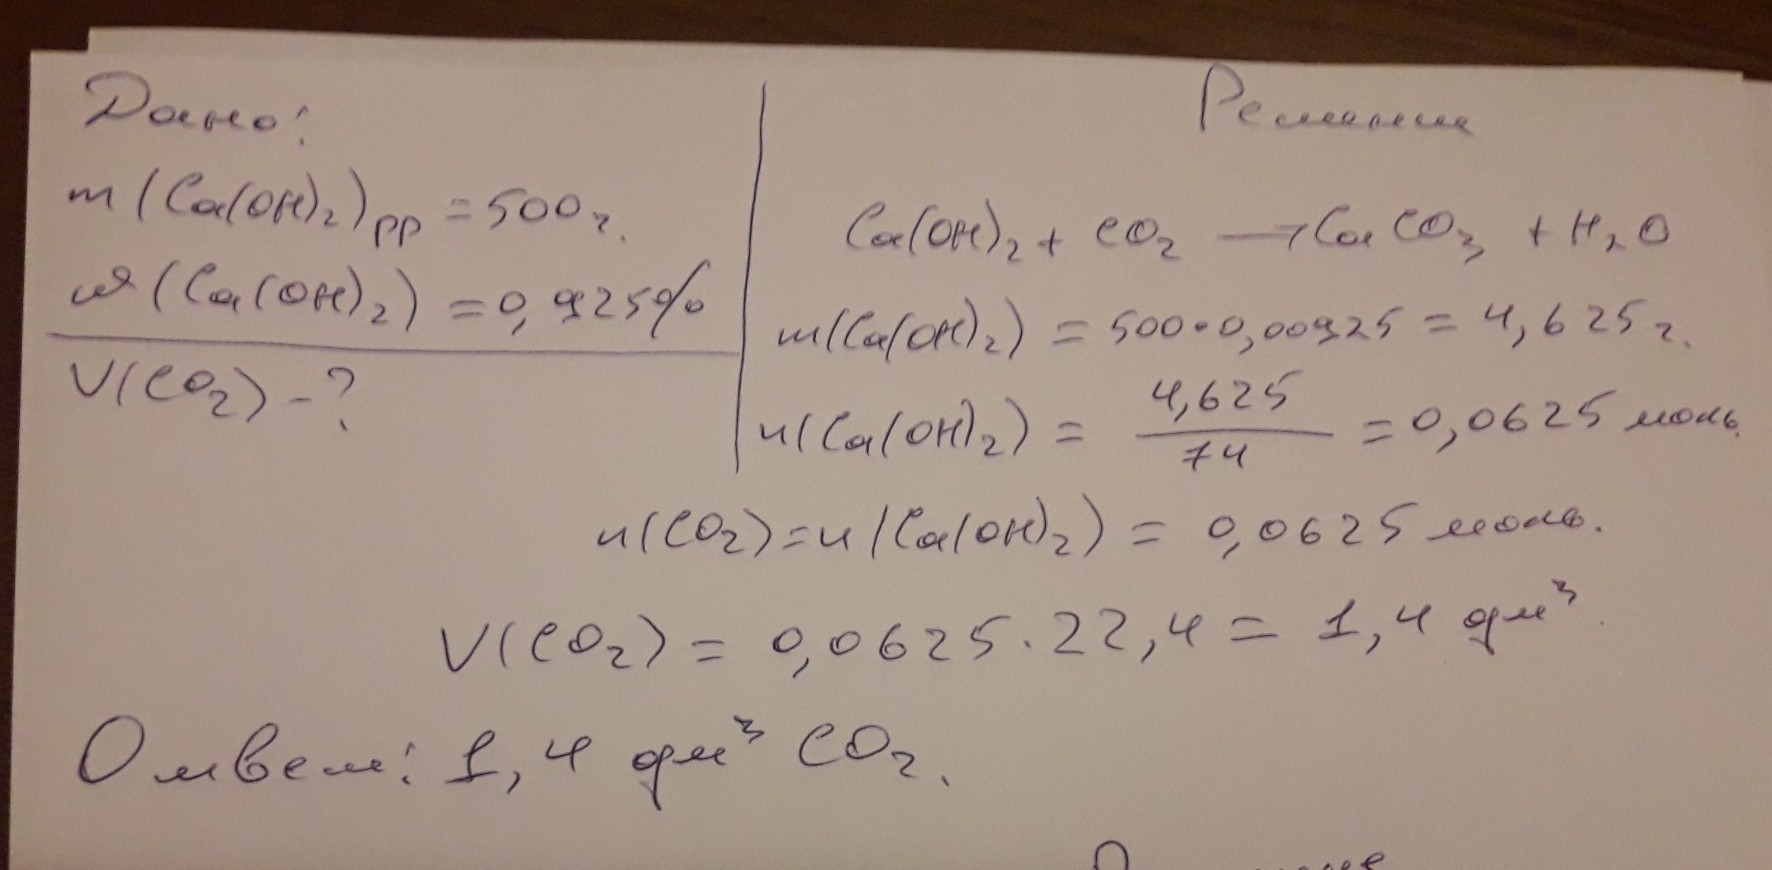 Дано:
m(Ca(OH)₂)рр = 500г.
w(Ca(OH)₂) = 0,925%
V(CO₂) - ?
Решение
Ca(OH)₂ + CO₂ → CaCO₃ + H₂O
m(Ca(OH)₂) = 500·0,00925 = 4,625 г.
n(Ca(OH)₂) = 4,625/74 = 0,0625 моль.
n(CO₂) = n(Ca(OH)₂) = 0,0625 моль.
V(CO₂) = 0,0625·22,4 = 1,4 дм³.
Ответ: 1,4 дм³ CO₂.